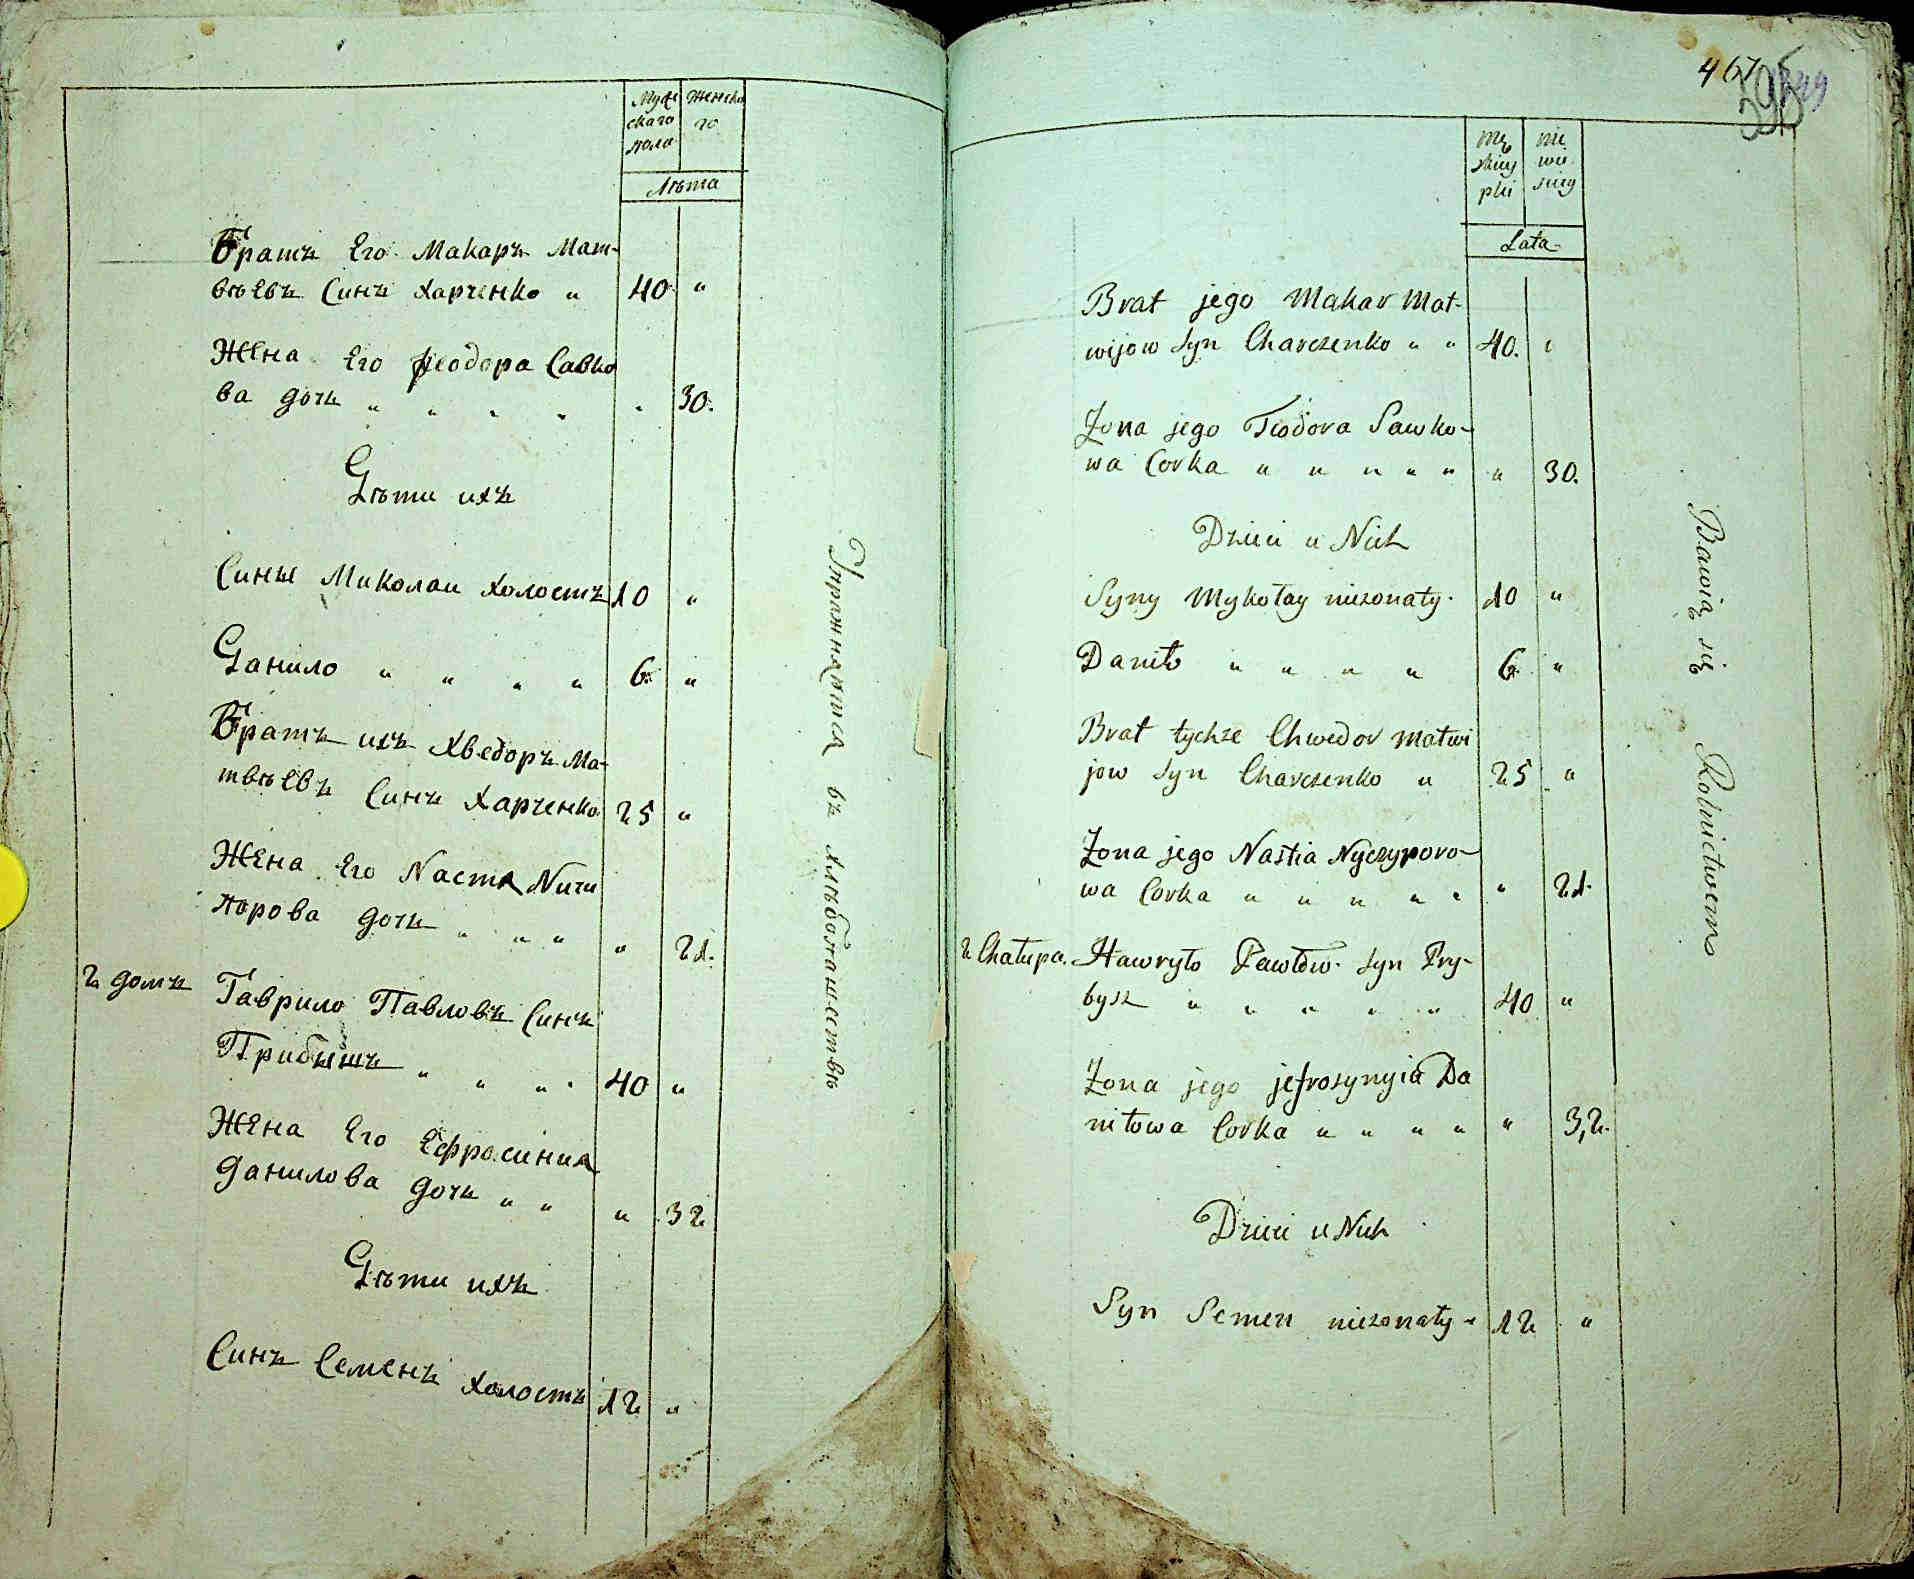 Мужескаго пола
Женскаго
Лѣта
Братъ Его Макаръ Мат-
вѣевъ Синъ Харченко " 40 "
Жена Его Феодора Савко
ва дочь " " " " " 30.
Дѣти ихъ
Сины Миколаи холостъ 10 "
Данило " " " " 6. "
Братъ ихъ Хведоръ Ма-
твѣевъ Синъ Харченко 25 "
Жена Его Настя Ничи
порова дочь " " " " 21.
2 домъ Гаврило Павловъ Синъ
Прибышъ " " " " 40 "
Жена Его Ефросиния
Данилова дочь " " " 32
Дѣти ихъ
Синъ Семенъ холостъ 12 "
Упражняются въ хлѣбопашествѣ
467
Lata
Brat jego Makar Mat-
wijow Syn Charczenko " " 40. "
Zona jego Fiodora Sawko-
wa Corka " " " " " " 30.
Dzieci u Nich
Syny Mykołay niezonaty. 10 "
Daniło " " " " 6. "
Brat tychze Chwedor Matwi
jow Syn Charczenko " 25 "
Zona jego Nastia Nyczyporo-
wa Corka " " " " " " 21.
2 Chałupa. Hawryło Pawłow. Syn Pry-
bysz " " " " " 40 "
Zona jego jefrosynyia Da
niłowa Corka " " " " " 32.
Dzieci u Nich
Syn Semen niezonaty " 12 "
Bawią się Rolnictwem